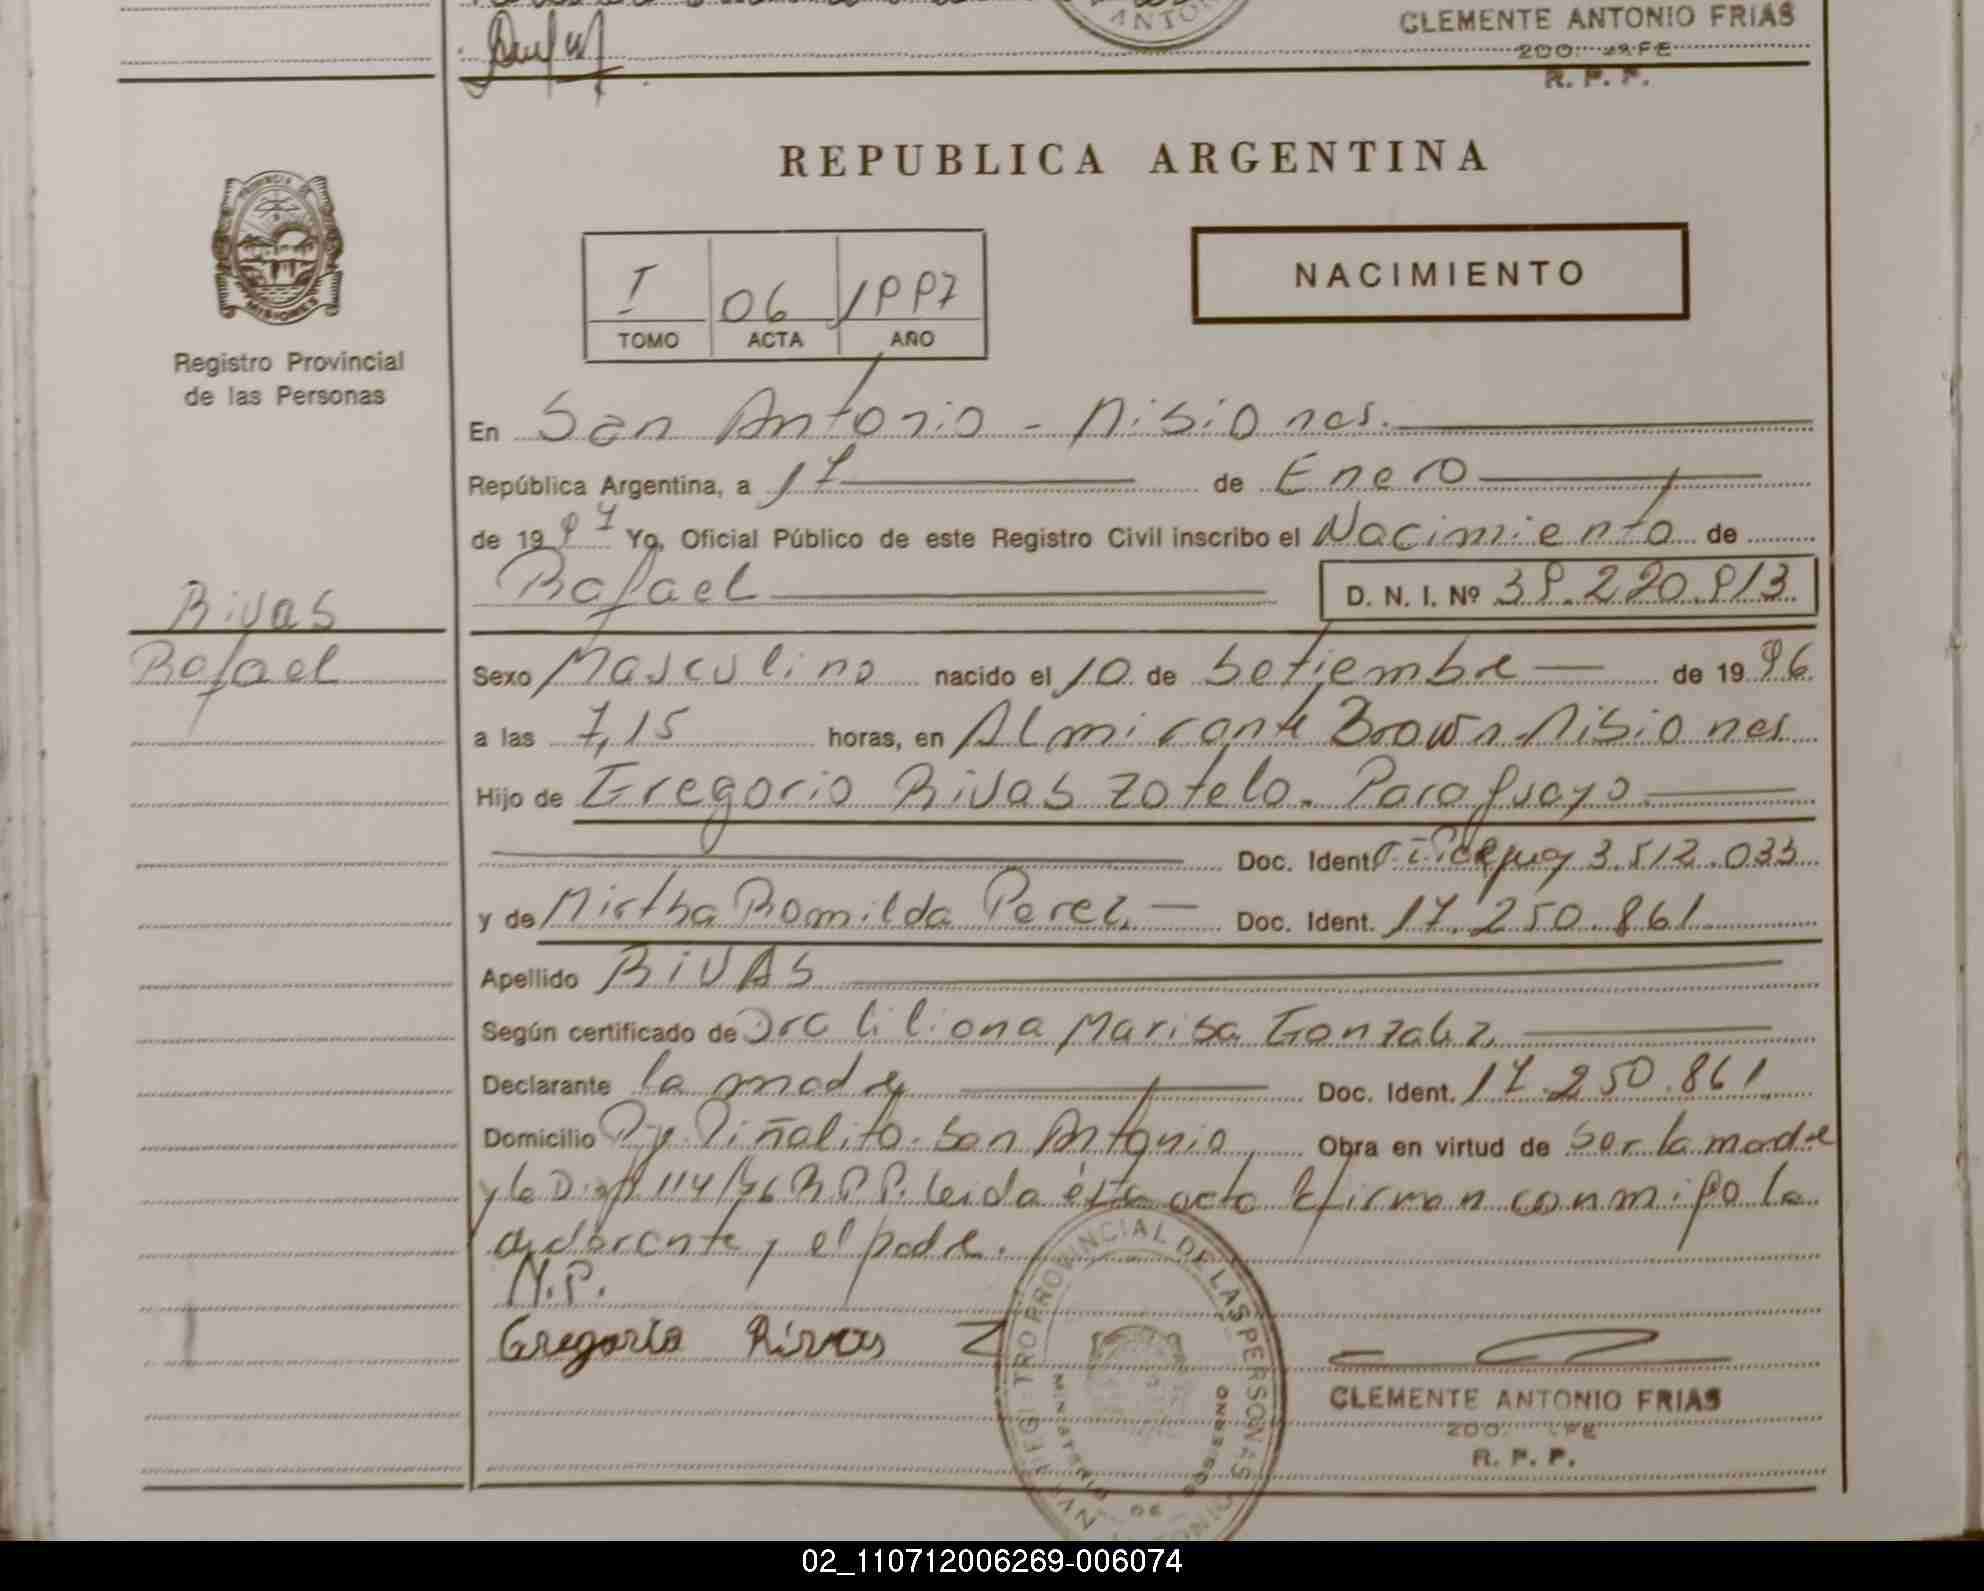 ANTON
CLEMENTE ANTONIO FRIAS
2DO. JEFE
R. P. P.
REPUBLICA ARGENTINA
PROVINCIA DE
MISIONES
Registro Provincial
de las Personas
I 06 1997
TOMO ACTA AÑO
NACIMIENTO
En San Antonio - Misiones.
República Argentina, a 17 de Enero
de 19 97 Yo, Oficial Público de este Registro Civil inscribo el Nacimiento de
Rafael D. N. I. Nº 39.220.913
Rivas
Rafael
Sexo Masculino nacido el 10 de Setiembre de 19 96
a las 7,15 horas, en Almirante Brown-Misiones
Hijo de Gregorio Rivas Zotelo. Paraguayo
Doc. Ident. 3.512.033
y de Mirtha Romilda Perez. Doc. Ident. 17.250.861
Apellido RIVAS
Según certificado de Dra Liliana Marisa Gonzalez
Declarante la madre Doc. Ident. 17.250.861
Domicilio Piñalito - San Antonio Obra en virtud de Ser la madre
y la Disp 114/96 R.P.P. leida ésta acta la firman conmigo la
declarante y el padre.
M.P.
Gregorio Rivas Z
CLEMENTE ANTONIO FRIAS
2DO. JEFE
R. P. P.
REGISTRO PROVINCIAL DE LAS PERSONAS
MINISTERIO DE GOBIERNO
02_110712006269-006074